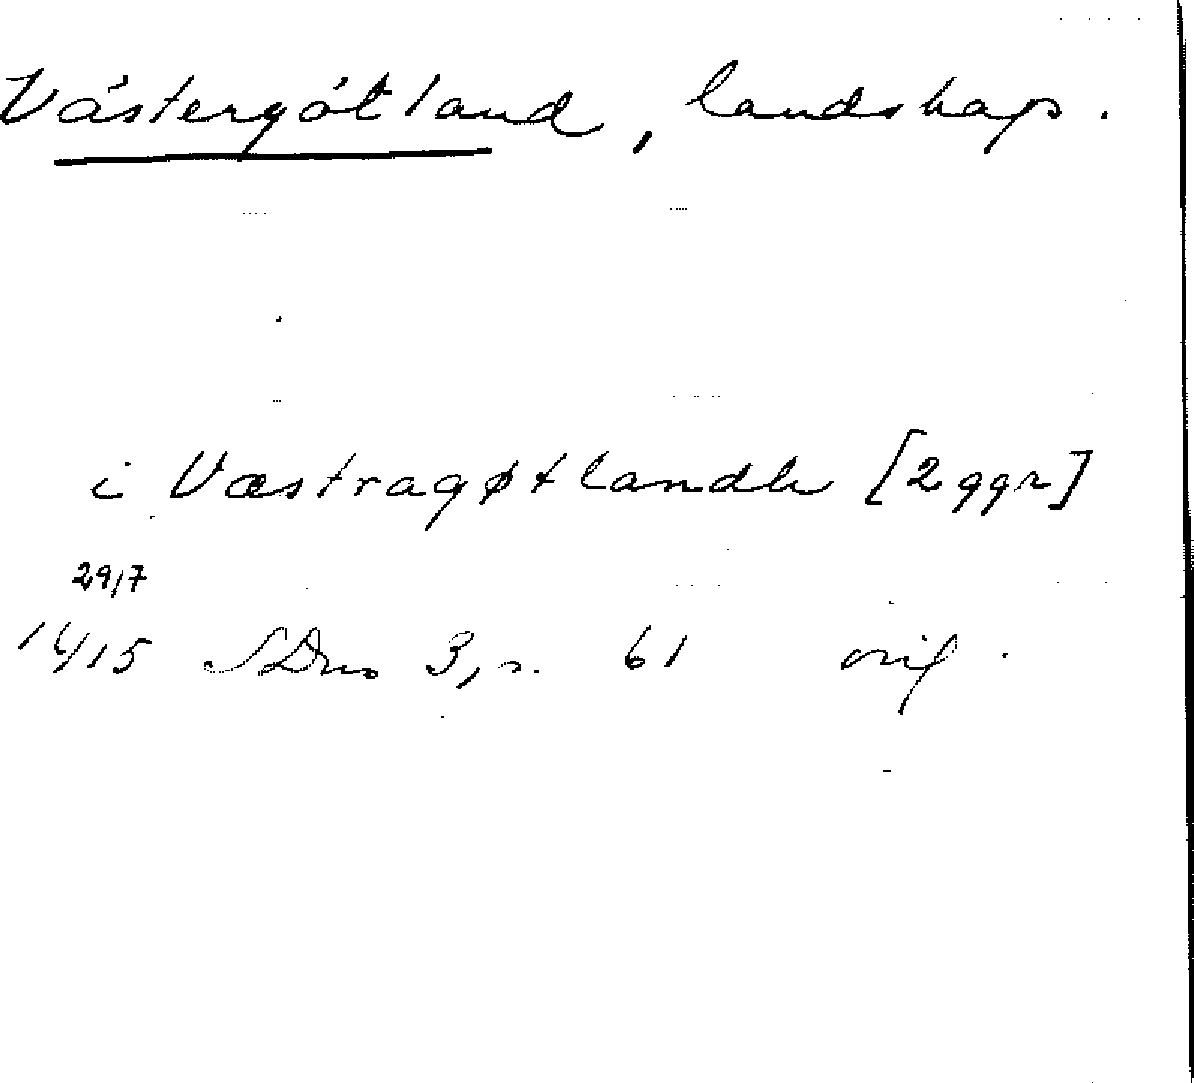 Västergötland, landskap.
i Væstragøtlandh [2 ggr]
29/7
1415 SDns 3, s. 61 orig.